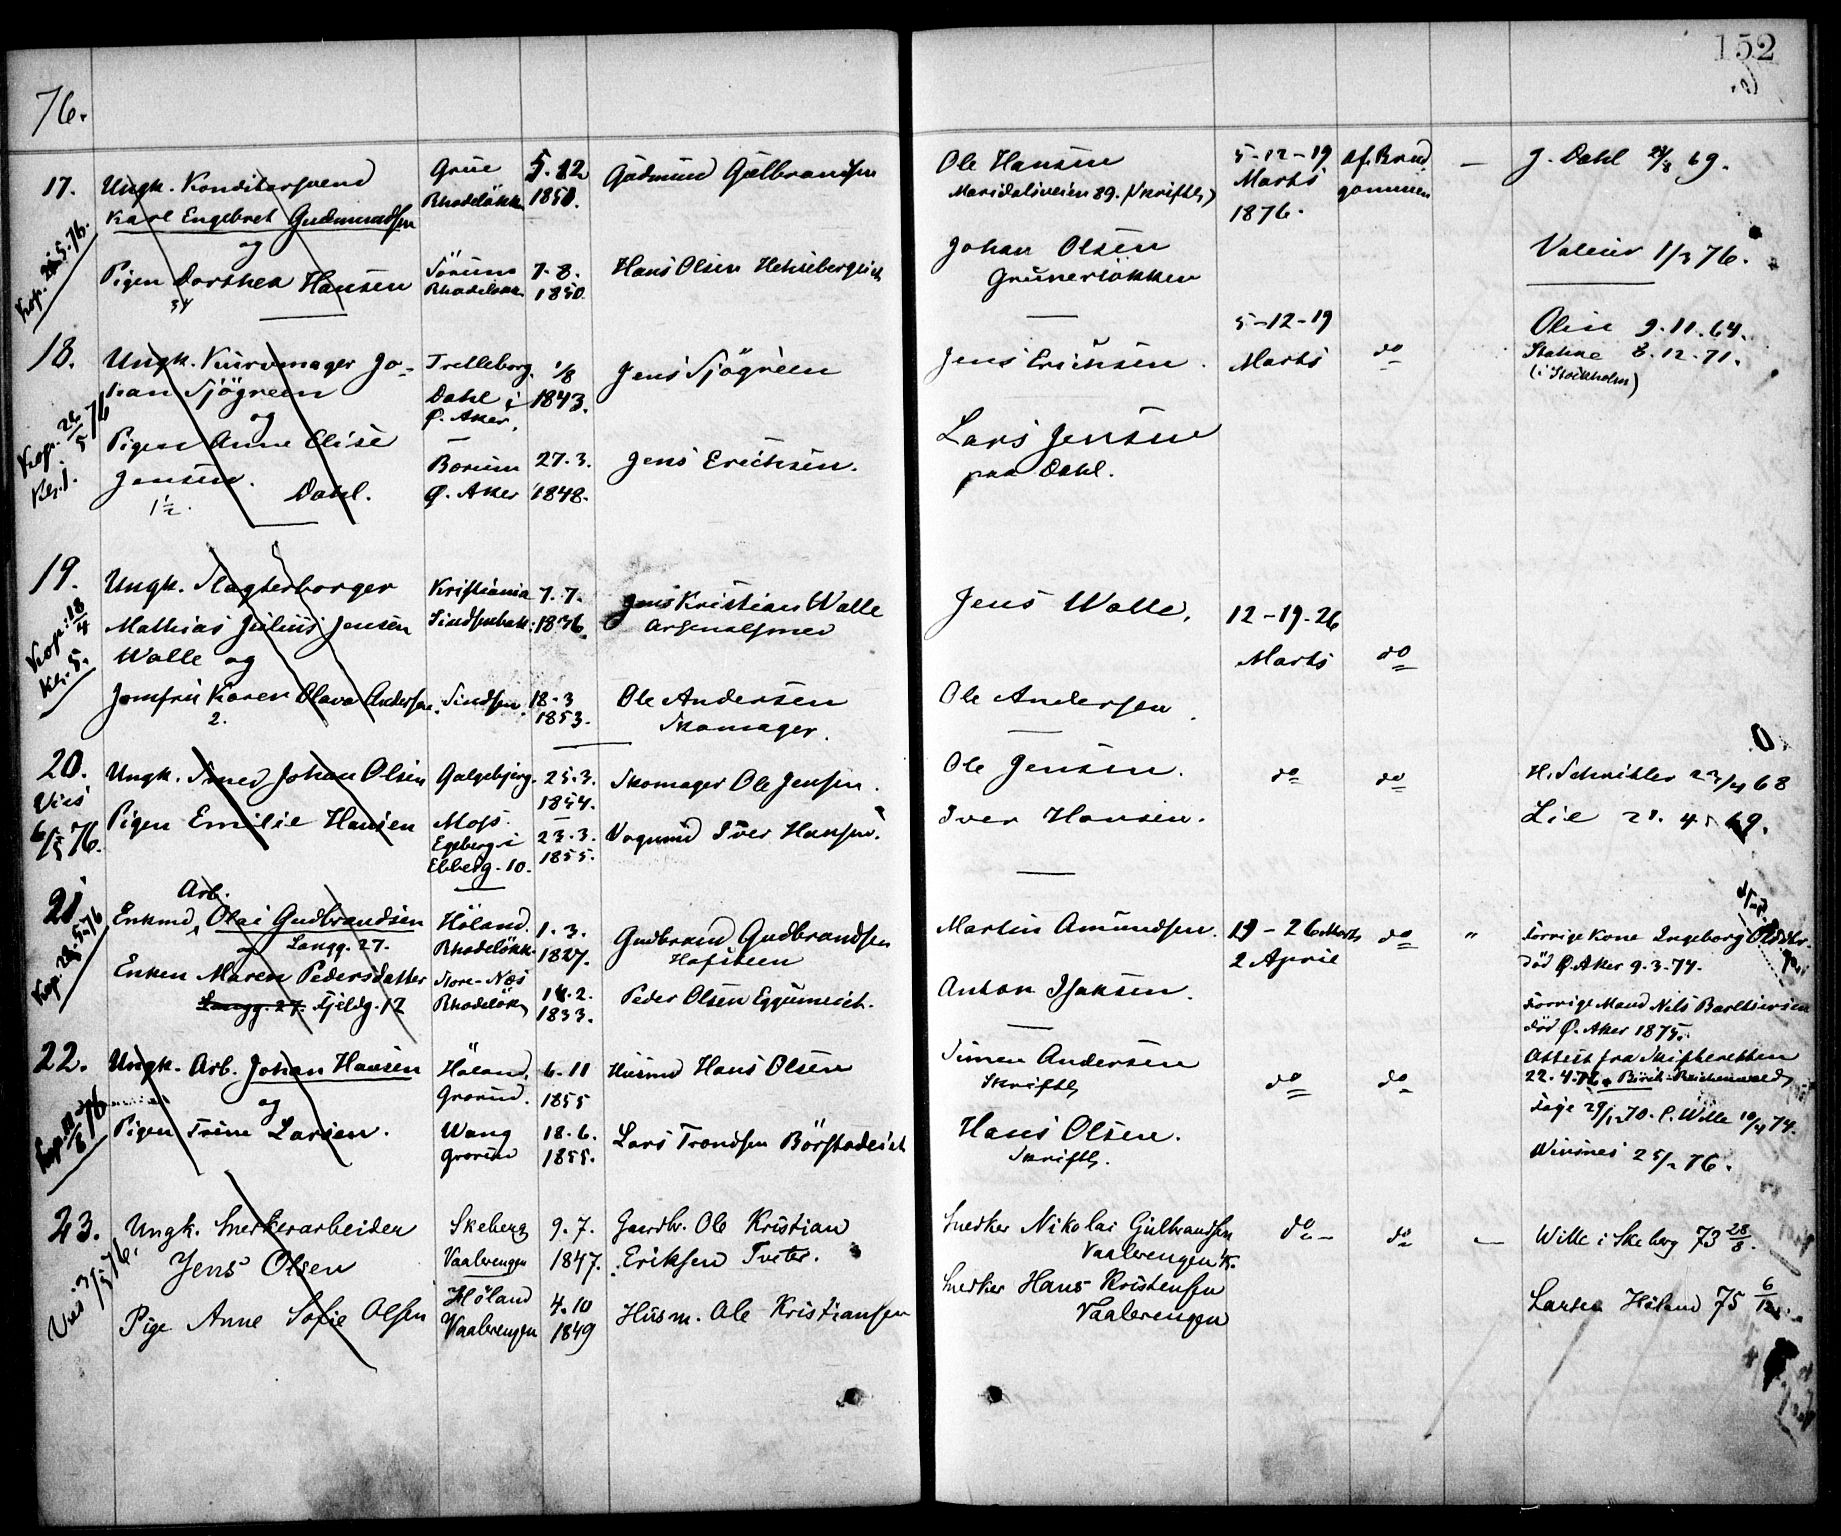 152
76.
17. Ungk. Konditorsvend Grue 5. 12 Gudmund Gulbrandsen Ole Hansen 5-12-19 Af Brud — J. Dahl 69.
Karl Engebret Gudmundsen Rhodelökken 1850. Maridalsveien 89. (Skriftlg) Marts gommen
Kop. 5. 76. og 1876.
Pigen Dorthea Hansen Sörum 7. 8. Hans Olsen Johan Olsen 1/3 76.
34 Rhodelökk. 1850. Grünerløkken
18. Ungk. Kurvmager Jo- Trelleborg 1/8 Jens Sjögreen Jens Erichsen. 5-12-19 do Olin 9.11.64.
han Sjögreen Dahl i 1843. Marts 8.12.71.
Ø. Aker. (i Stockholm)
Kop. 5 76 og
Pigen Anne Elise 27. 3. Jens Erichsen. Lars Jensen
Kl. 1. Jensen. Dahl. Ø. Aker 1848. paa Dahl.
1½.
19. Ungk. Slagterborger Kristiania 7. 7. Jens Kristian Walle Jens Walle. 12-19-26
Kop: 18/4 Mathias Julius Jensen Sindsenbakk. 1836. Arsenalsmed Marts do
Kl. 5. Walle og
Jomfru Karen Olava Andersen. Sindsen 18. 3 Ole Andersen Ole Andersen.
2. 1853. Skomager.
0.
20. Ungk. Smed Johan Olsen Galgebjerg. 25. 3. Skomager Ole Jensen. Ole Jensen. do do H. Schnitler 23/4 68
Vies 1854.
6/5 76. Pigen Emilie Hansen Moss. 23. 3. Vognmd Iver Hansen. Iver Hansen. Lie 4 69.
Egeberg i 1855.
Ebberg. 10.
21. Arb.
Enkmd Olai Gudbrandsen Höland. 1. 3. Gudbrand Gudbrandsen Martin Amundsen. 19-26 Marts do " Forrige Kone Ingeborg
Kop. 5-76 og Langg. 27. Rhodelökk. 1827. 2 April död Ø. Aker 9.3.74.
Enken Maren Pedersdatter Store-Næs 2. Peder Olsen Anton Isaksen. Forrige Mand Nils
Langg. 27. Fjeldg. 12 Rhodelök 1833. död Ø. Aker 1875.
22. Ungk. Arb. Johan Hansen Höland. 6. 11 Husmd Hans Olsen Simen Andersen do do Attest fra Skifteretten
Grorud. 1855 Skriftlg 22. 4. 76.
Kop. 8 76 og
Pigen Trine Larsen. Wang 18. 6. Lars Trondsen Hans Olsen. 29/12 70. C. Wille 10/4 74.
Grorud 1855. Skriftlg. 76.
23. Ungk. Snedkerarbeider Skeberg 9. 7. Gaardbr. Ole Kristian Snedker Nikolai Gulbrandsen do — do — Wille i Skeberg 73 28/8.
Vies 3/5 76. Jens Olsen Vaalerengen 1847. Eriksen Tveter. Vaalerengen
Pige Anne Sofie Olsen Höland 4. 10 Husm. Ole Kristiansen Snedker Hans Kristensen Höland 75 6/12.
Vaalerengen 1849 Vaalerengen